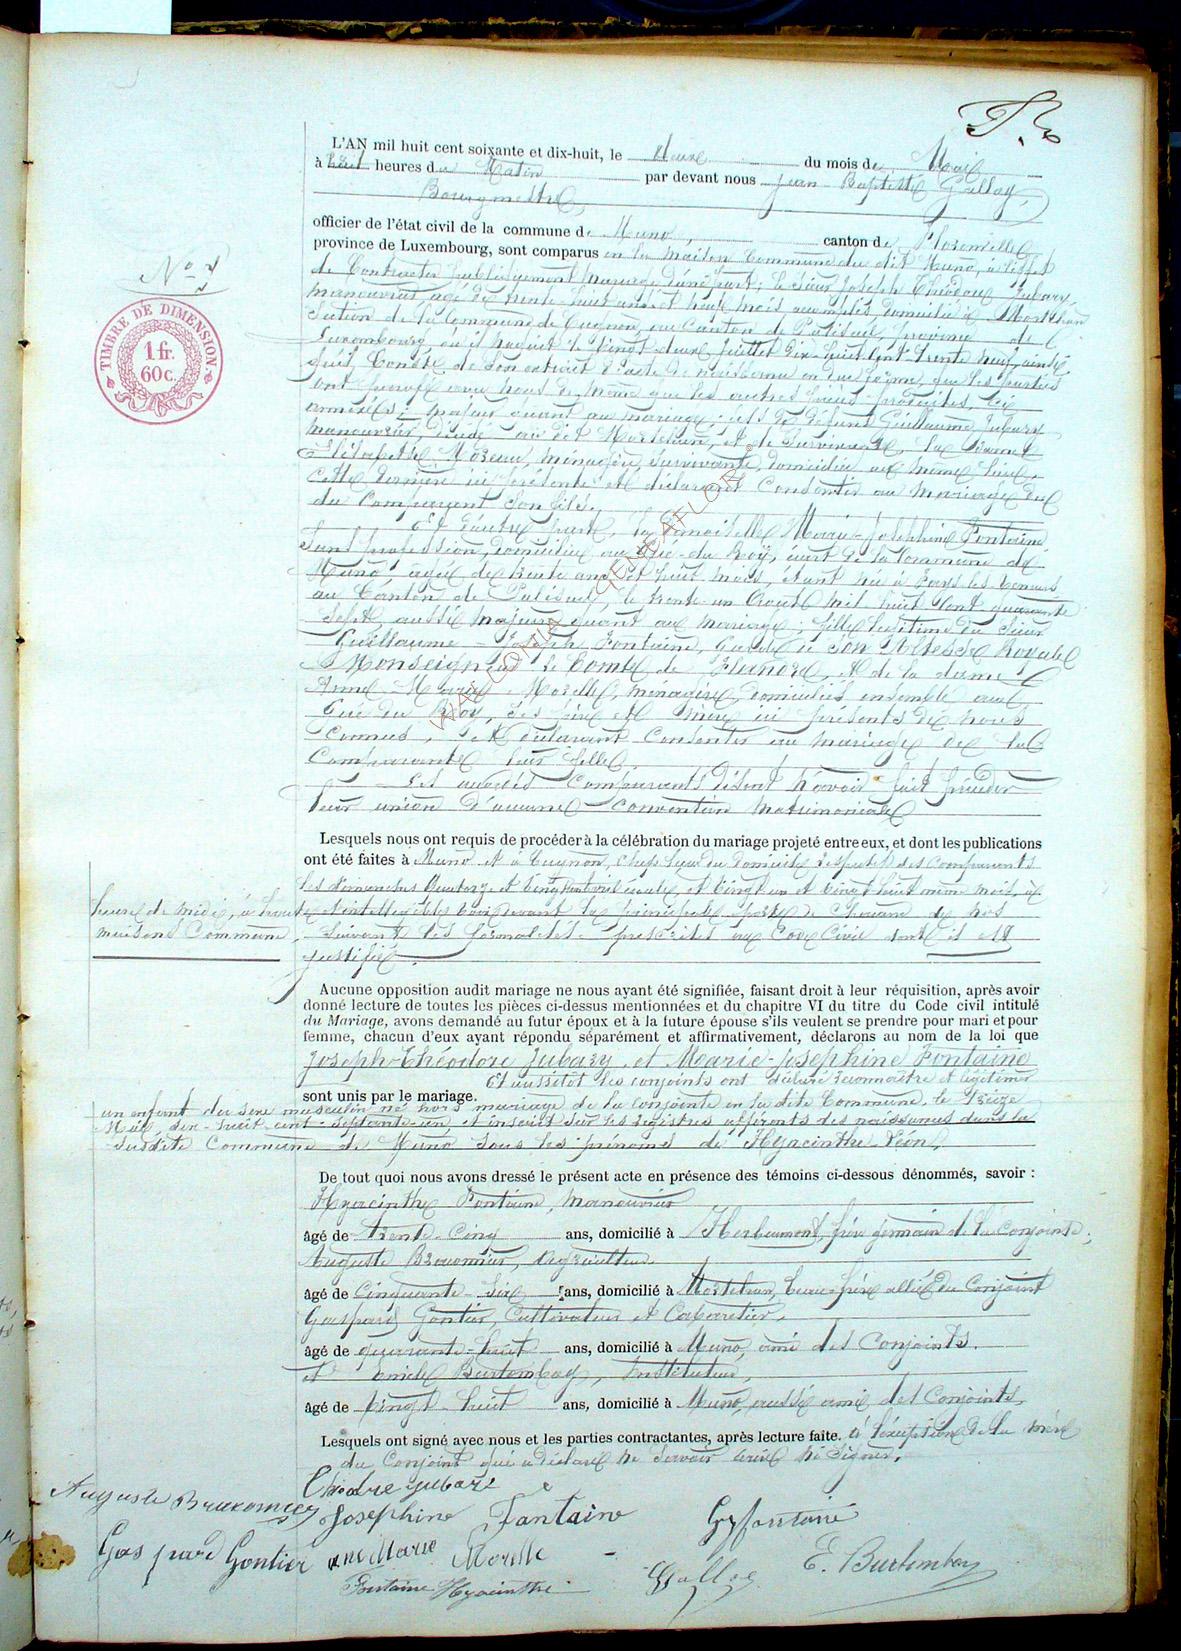 L'AN mil huit cent soixante et dix-huit, le deux du mois de Mai
à huit heures du Matin par devant nous Jean Baptiste Galloy,
Bourgmestre,
officier de l'état civil de la commune de Muno, canton de Florenville
province de Luxembourg, sont comparus en la maison Commune du dit Muno, à l'effet
de Contracter publiquement mariage d'une part; le Sieur Joseph Théodore Jubary,
manouvrier, agé de trente huit ans et neuf mois accomplis, domicilié à Mortehan
Section de la Commune de Cugnon, au Canton de Paliseul, province de
Luxembourg où il naquit le vingt deux Juillet dix huit cent trente neuf, ainsi
qu'il Conste de son extrait d'acte de naissance en due forme, que les parties
ont produit devant nous de même que les autres pièces produites, ci
annexées; majeur quant au mariage; fils de défunt Guillaume Jubary
manouvrier, décédé au dit Mortehan, et de Survivante, la Dame
Elisabethe Moreau, ménagère, Survivante, domiciliée au même lieu,
cette dernière ici présente et déclarant Consentir au mariage du
du Comparant Son fils.
Et d'autre part, la Demoiselle Marie-Josephine Fontaine
Sans profession, domiciliée au Gué-du Roy, écart de la Commune de
Muno agée de trente ans et huit mois, étant née à Fays les Veneurs
au Canton de Paliseul, le trente-un Août mil huit Cent quarante
Sept, aussi majeure quant au mariage; fille légitime du Sieur
Guillaume Joseph Fontaine, Garde à Son Altesse Royale
Monseigneur le Comte de Flandre, & de la dame
Anne-Marie Morelle, ménagère, domiciliés ensemble au
Gué du Roy, ses père et Mère ici présents de nous
Connus, et déclarant Consentir au mariage de la
Comparante leur fille
Les susdits Comparants disent n'avoir fait précéder
leur union d'aucune Convention matrimoniale
Lesquels nous ont requis de procéder à la célébration du mariage projeté entre eux, et dont les publications
ont été faites à Muno et à Cugnon, chefs lieux du domicile respectif des Comparants
les dimanches Quatorze et Vingt un et Vingt huit même mois, à
heure de midi, à haute et intelligible voix devant la principale porte de chacune de nos
maisons Commune, Suivant les formalités prescrites au Code Civil dont il est
justifié.
Aucune opposition audit mariage ne nous ayant été signifiée, faisant droit à leur réquisition, après avoir
donné lecture de toutes les pièces ci-dessus mentionnées et du chapitre VI du titre du Code civil intitulé
du Mariage, avons demandé au futur époux et à la future épouse s'ils veulent se prendre pour mari et pour
femme, chacun d'eux ayant répondu séparément et affirmativement, déclarons au nom de la loi que
Joseph-Théodore Jubary, et Marie-Josephine Fontaine
sont unis par le mariage. Et aussitôt les conjoints ont déclaré reconnaître et légitimer
un enfant du sexe masculin né hors mariage de la conjointe en la dite Commune, le treize
Mai, dix-huit-cent-septante-un, et inscrit sur les registres afférents des naissances dans la
susdite Commune de Muno sous les prénoms de Hyacinthe-Léon.
De tout quoi nous avons dressé le présent acte en présence des témoins ci-dessous dénommés, savoir :
Hyacinthe Fontaine, manouvrier
âgé de trente-Cinq ans, domicilié à Herbeumont, frère germain de la conjointe,
Auguste Brucomnier, Agriculteur
âgé de Cinquante-Six ans, domicilié à Mortehan, beau-frère allié du Conjoint
Gaspard Gontier, Cultivateur et Cabaretier,
âgé de quarante-huit ans, domicilié à Muno, ami des Conjoints.
et Emile Burtomboy, Instituteur,
âgé de vingt-huit ans, domicilié à Muno, aussi ami des Conjoints,
Lesquels ont signé avec nous et les parties contractantes, après lecture faite. à l'exception de la mère
du Conjoint qui a déclaré ne Savoir écrire ni Signer.
N° 7
TIMBRE DE DIMENSION.
1 fr.
60 c.
WALLONIA GENEAFLOR
Théodre Jubari
Auguste Brucomnier Josephine Fantaine G J fontaine
Gaspard Gontier anne Marie Morelle Galloy E. Burtomboy
Fontaine Hyacinthe